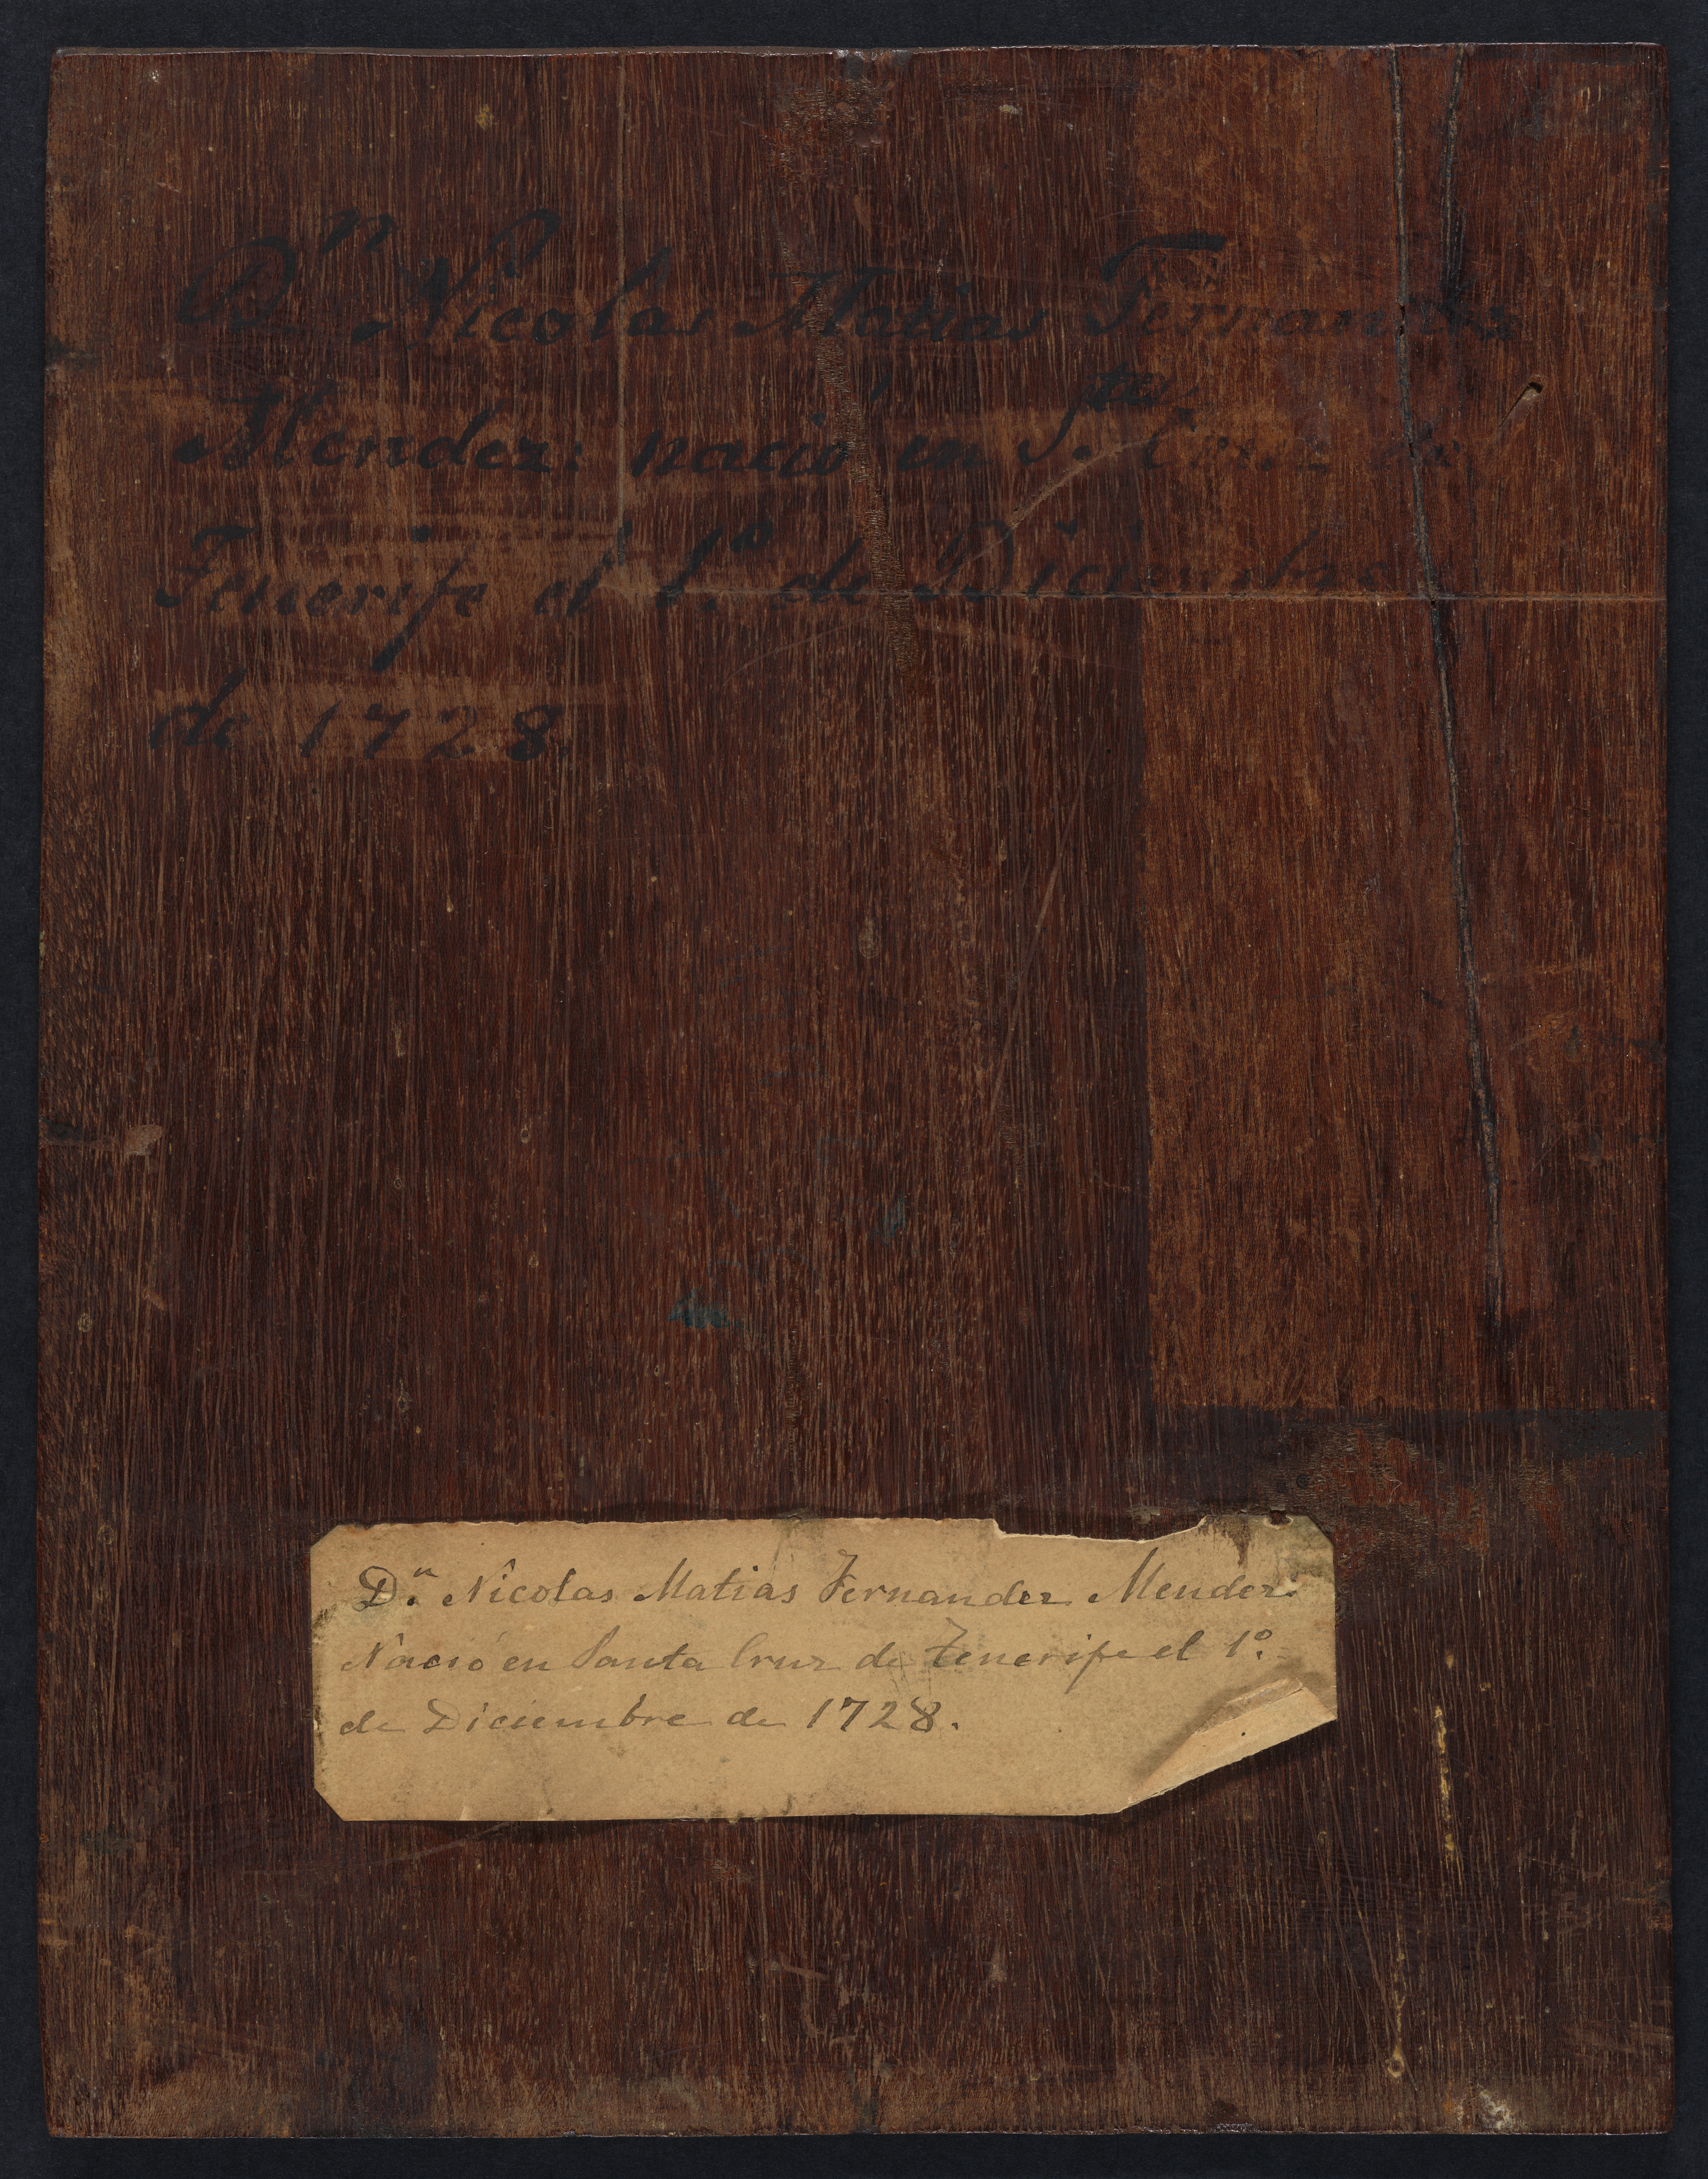 Dn. Nicolas Matias Fernandez
Mendez: nació en Sta. Cruz de
Tenerife el 1.º de Diciembre
de 1728.
Dn. Nicolas Matias Fernandez Mendez.
Nació en Santa Cruz de Tenerife el 1º.
de Diciembre de 1728.